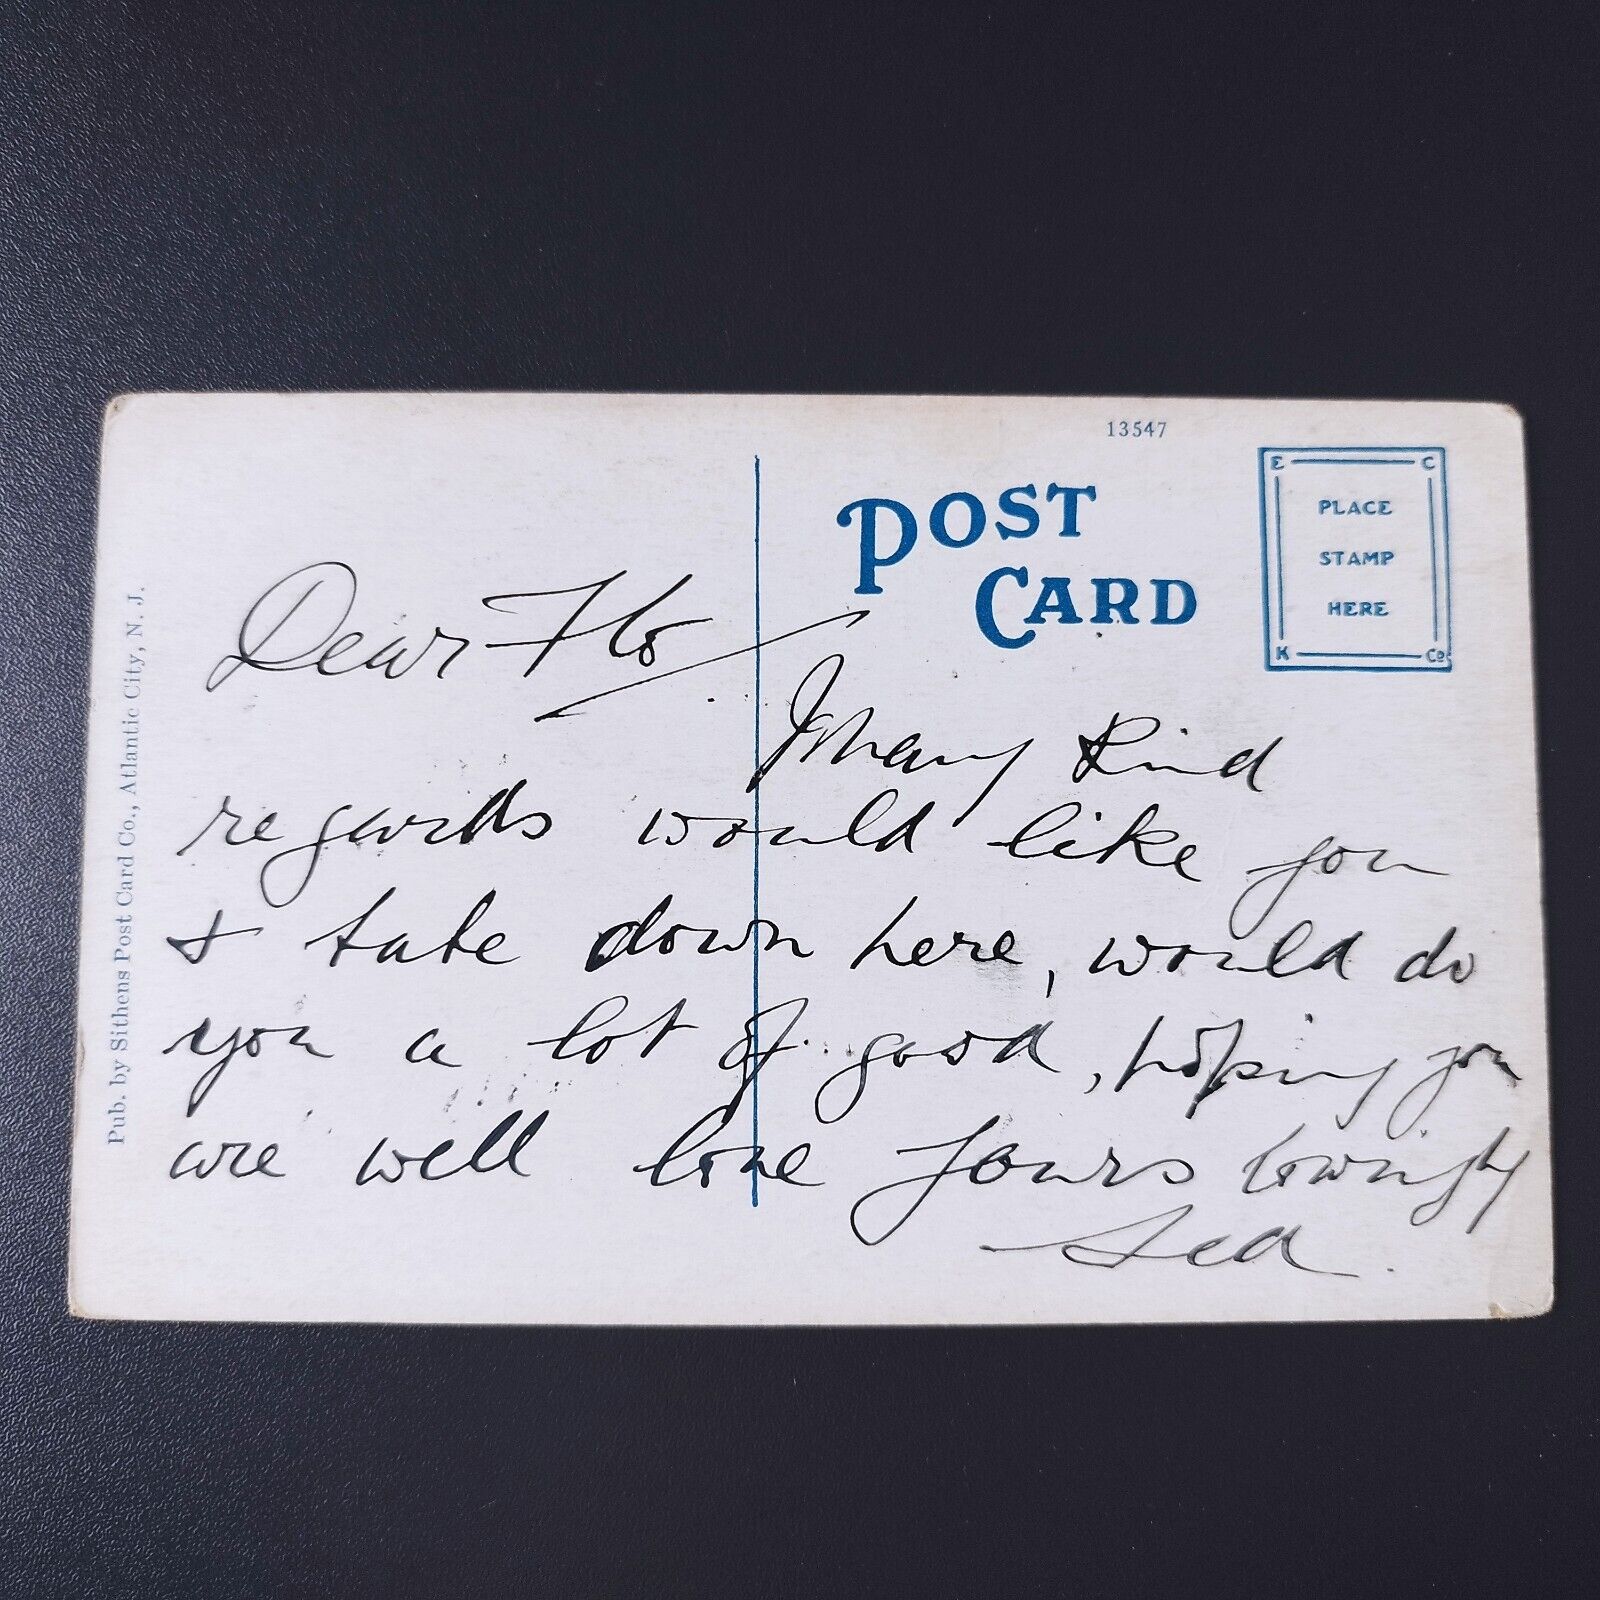 13547
POST
CARD
E C
PLACE
STAMP
HERE
K Co
Pub. by Sithens Post Card Co., Atlantic City, N. J.
Dear Flo
many kind
regards would like you
& down here, would do
you a lot of good, hoping you
are well love yours lovingly